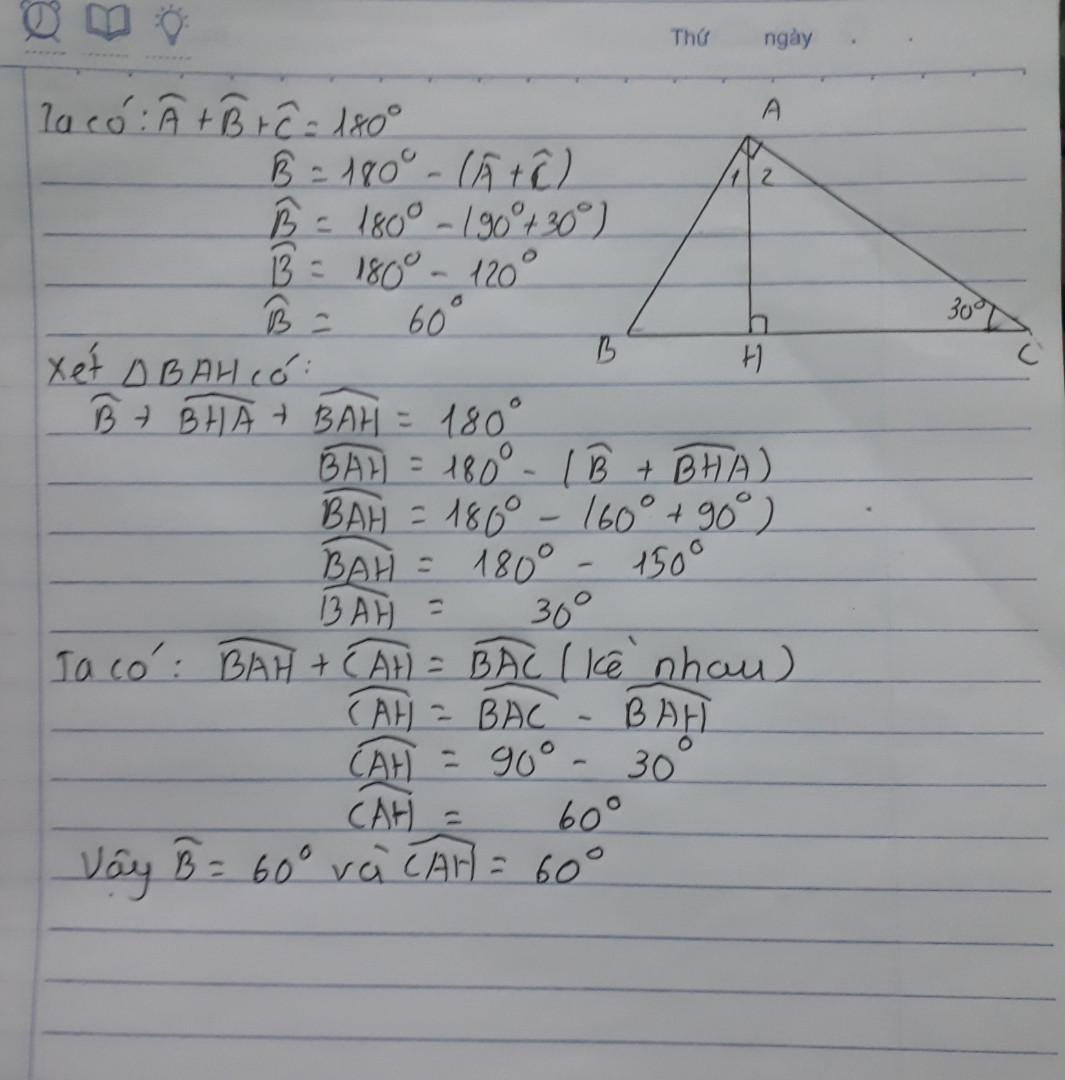 Thứ ngày . .
Ta có: Â + B̂ + Ĉ = 180°
B̂ = 180° - (Â + Ĉ)
B̂ = 180° - (90° + 30°)
B̂ = 180° - 120°
B̂ = 60°
A
1 2
30°
B H C
Xét ΔBAH có:
B̂ + \widehat{BHA} + \widehat{BAH} = 180°
\widehat{BAH} = 180° - (B̂ + \widehat{BHA})
\widehat{BAH} = 180° - (60° + 90°)
\widehat{BAH} = 180° - 150°
\widehat{BAH} = 30°
Ta có: \widehat{BAH} + \widehat{CAH} = \widehat{BAC} (kề nhau)
\widehat{CAH} = \widehat{BAC} - \widehat{BAH}
\widehat{CAH} = 90° - 30°
\widehat{CAH} = 60°
Vậy B̂ = 60° và \widehat{CAH} = 60°